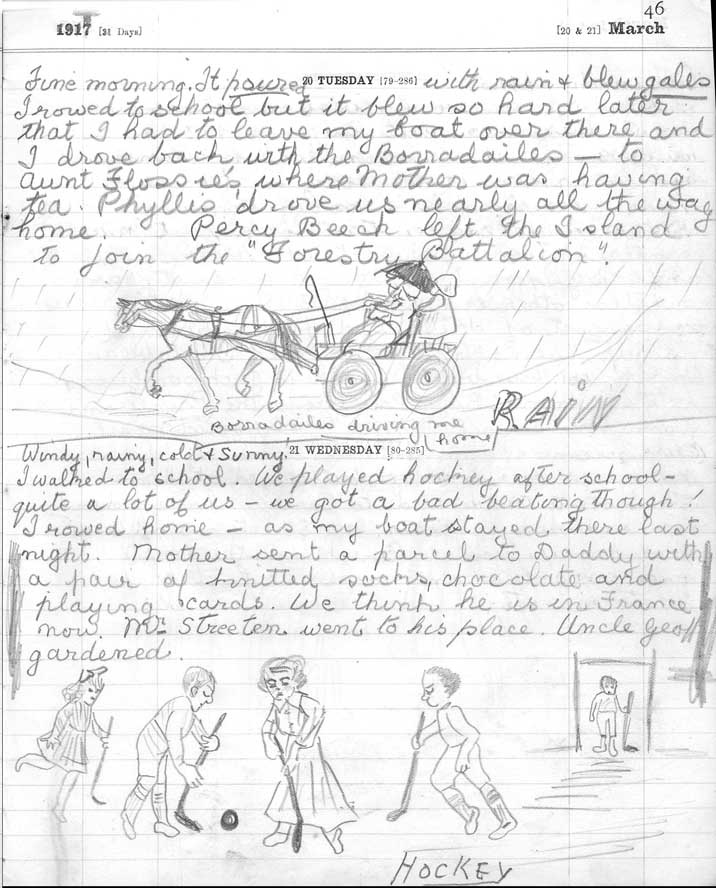 46
1917 [31 Days] [20 & 21] March
Fine morning. It poured 20 TUESDAY [79-286] with rain & blew gales
I rowed to school but it blew so hard later
that I had to leave my boat over there and
I drove back with the Borradailes — to
Aunt Flossie's where Mother was having
tea. Phyllis drove us nearly all the way
home. Percy Beech left the Island
to join the "Forestry Battalion".
Borradailes driving me
home
RAIN
Windy, rainy, cold & Sunny. 21 WEDNESDAY [80-285]
I walked to school. We played hockey after school -
quite a lot of us - we got a bad beating though!
I rowed home - as my boat stayed there last
night. Mother sent a parcel to Daddy with
a pair of knitted socks, chocolate and
playing cards. We think he is in France
now. Mr Streeten went to his place. Uncle Geoff
gardened.
HOCKEY